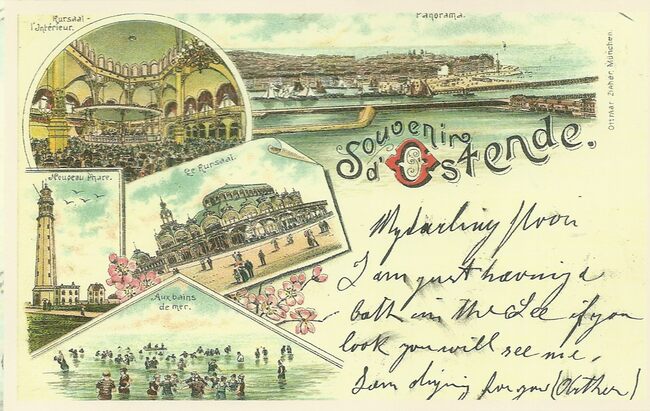 Kursaal -
l'Intérieur.
Panorama.
Ottmar Zieher, München.
Souvenir
d'Ostende.
Nouveau Phare.
Le Kursaal.
Aux bains
de mer.
My darling
I am just having a
bath in the See if you
look you will see me.
I am for you